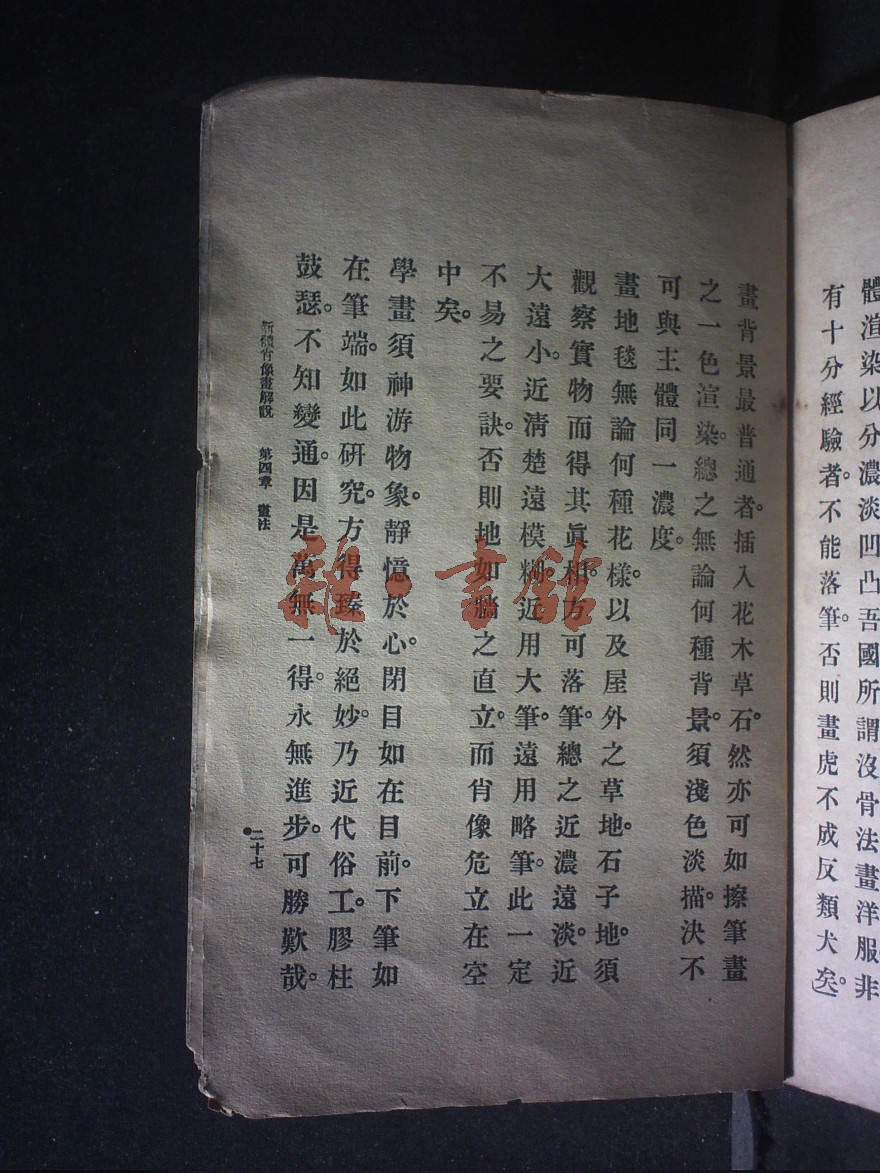 體渲染以分濃淡凹凸吾國所謂沒骨法畫洋服非
有十分經驗者。不能落筆。否則畫虎不成反類犬矣。)
畫背景最普通者。插入花木草石。然亦可如擦筆畫
之一色渲染。總之無論何種背景。須淺色淡描。決不
可與主體同一濃度。
畫地毯無論何種花樣。以及屋外之草地。石子地。須
觀察實物而得其眞相。方可落筆。總之近濃遠淡。近
大遠小。近淸楚遠模糊。近用大筆。遠用略筆。此一定
不易之要訣。否則地如牆之直立。而肖像危立在空
中矣。
學畫須神游物象。靜憶於心。閉目如在目前。下筆如
在筆端。如此研究。方得臻於絕妙。乃近代俗工。膠柱
鼓瑟。不知變通。因是萬無一得。永無進步。可勝歎哉。
新穎肖像畫解說 第四章 畫法
二十七
雜·書館